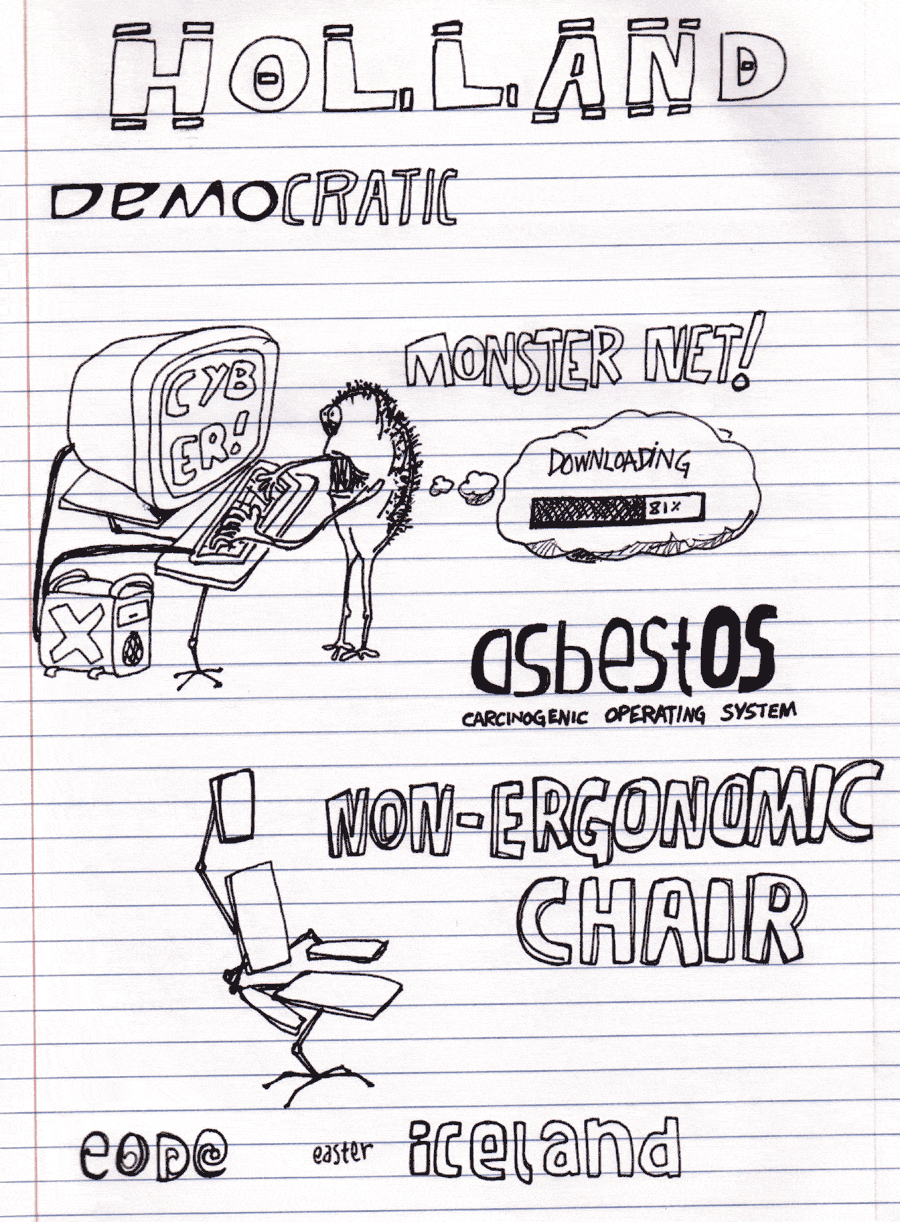 HOLLAND
DEMOCRATIC
MONSTER NET!
CYB
ER!
DOWNLOADING
81%
X
asbestOS
CARCINOGENIC OPERATING SYSTEM
NON-ERGONOMIC
CHAIR
easter iceland